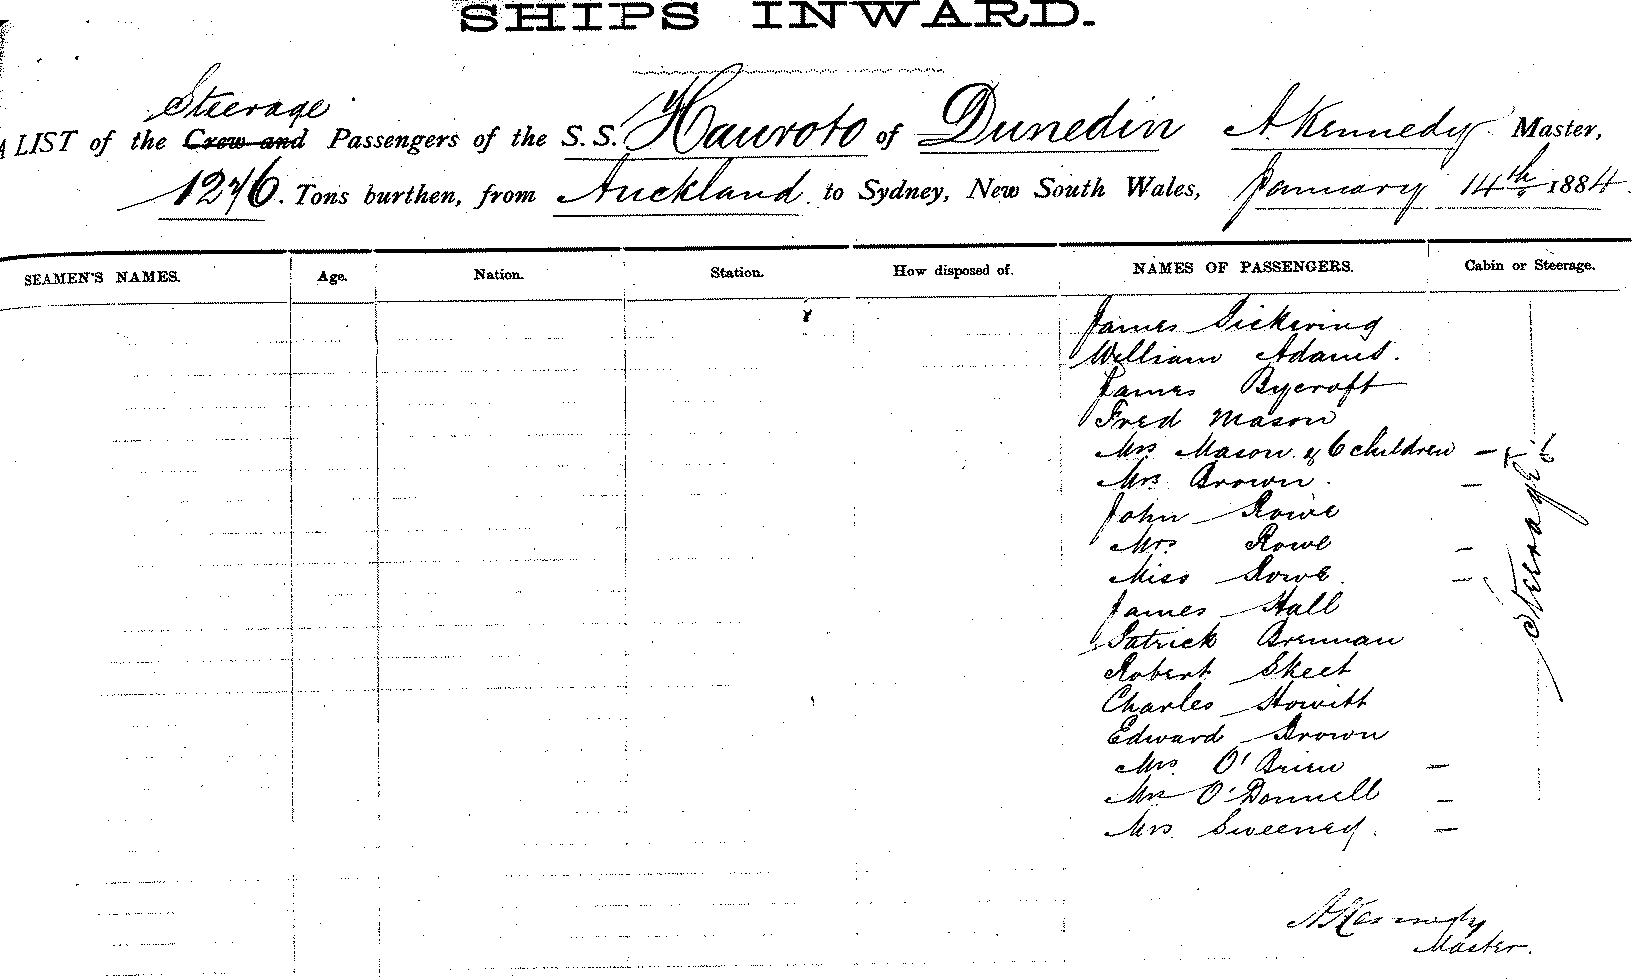 SHIPS INWARD.
Steerage
A LIST of the Crew and Passengers of the S.S. Hauroto of Dunedin A. Kennedy Master,
1276. Tons burthen, from Auckland to Sydney, New South Wales, January 14th 1884.
SEAMEN'S NAMES. Age. Nation. Station. How disposed of. NAMES OF PASSENGERS. Cabin or Steerage.
James Pickering
William Adams.
James Bycroft
Fred Mason
Mrs Mason & 6 children –
Mrs Brown. –
John Rowe
Mrs Rowe –
Miss Rowe. –
James Hall
Patrick Brennan
Robert Skeet
Charles Howitt
Edward Brown
Mrs O'Brien –
Mrs O'Donnell –
Mrs Sweeney. –
Steerage
A Kennedy
Master.